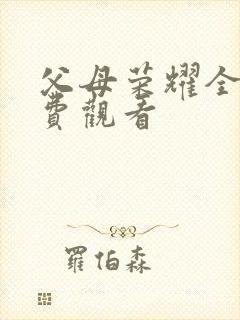 父母荣耀全
費觀看
羅伯森